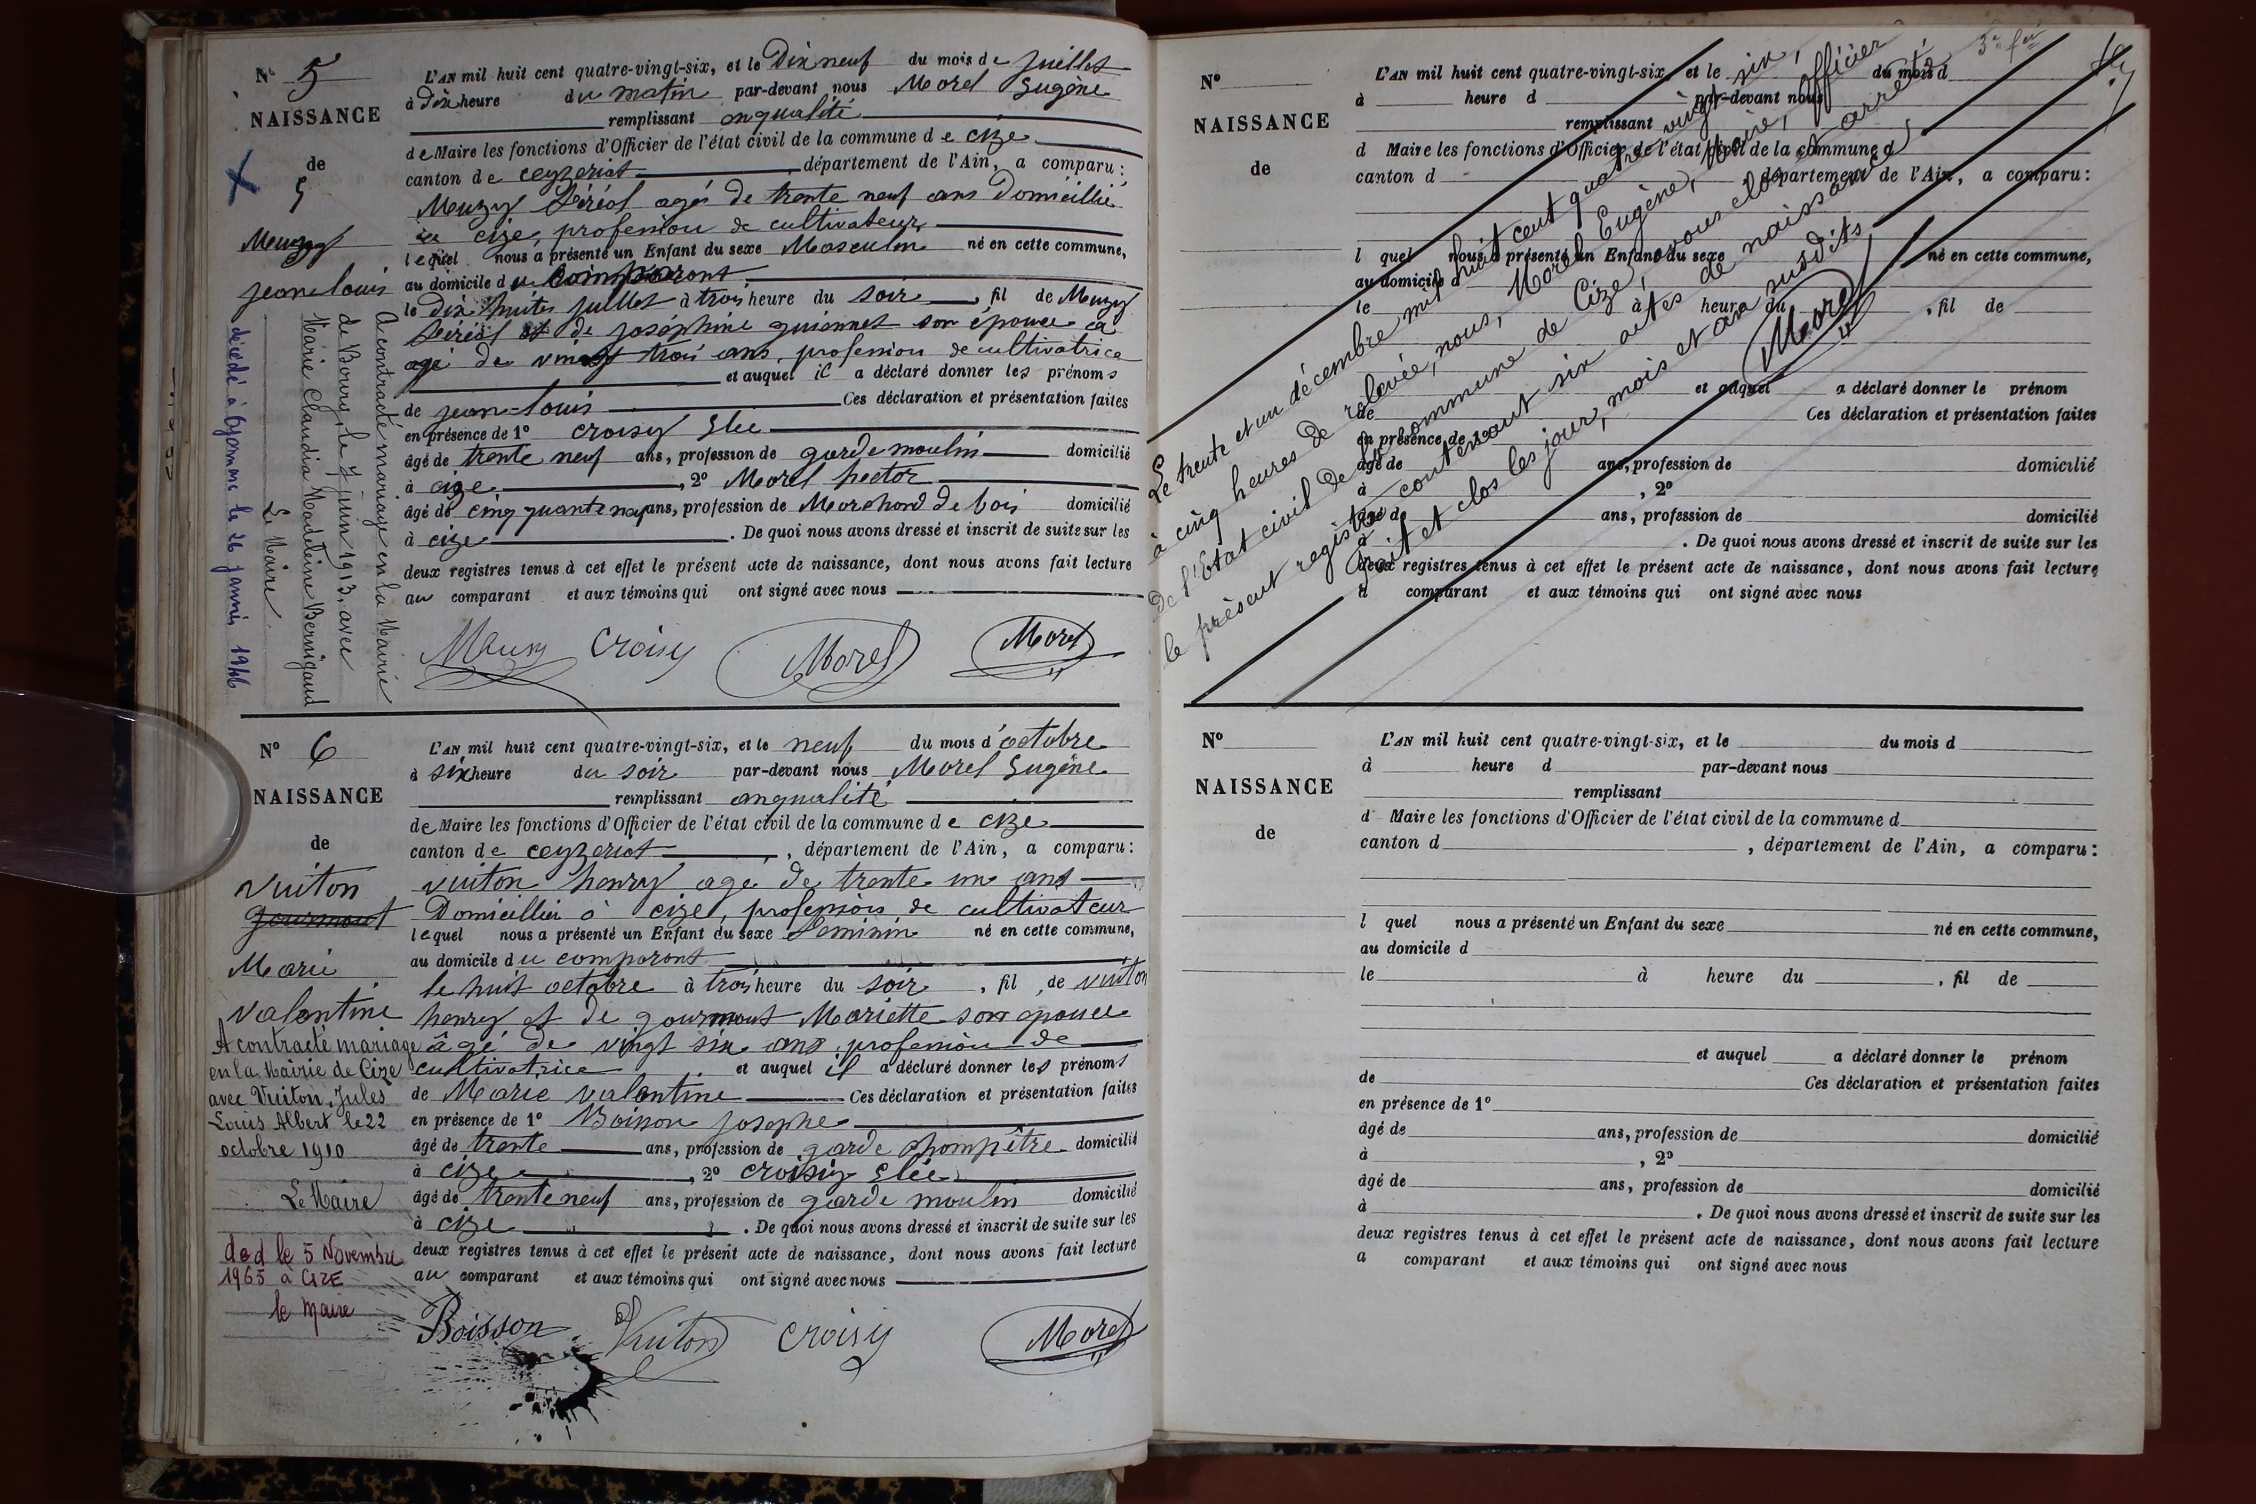 N° 5
NAISSANCE
de
5
Meuzy
jean louis
A contracté mariage en la Mairie
de Bourg, le 7 juin 1913, avec
Marie Claudia Madeleine Bernigaud
Le Maire
décédé à Oyonnax le 26 janvier 1946
L'AN mil huit cent quatre-vingt-six, et le Dix neuf du mois de juillet
à Dix heure du matin par-devant nous Morel Eugène
remplissant en qualité
de Maire les fonctions d'Officier de l'état civil de la commune de cize
canton de ceyzeriat, département de l'Ain, a comparu:
Meuzy féréol agés de trente neuf ans Domicillié
a cize, profession de cultivateur
lequel nous a présenté un Enfant du sexe Masculin né en cette commune,
au domicile du comparant
le dix huite jullet à trois heure du soir, fil de Meuzy
féréol et de joséphine guionnet son épouce
agé de vingt trois ans, profession de cultivatrice
et auquel il a déclaré donner les prénoms
de jean=louis Ces déclaration et présentation faites
en présence de 1° croisy Elie
âgé de trente neuf ans, profession de garde moulin domicilié
à cize, 2° Morel hector
âgé de cinquante ans, profession de Marchand de bois domicilié
à cize. De quoi nous avons dressé et inscrit de suite sur les
deux registres tenus à cet effet le présent acte de naissance, dont nous avons fait lecture
au comparant et aux témoins qui ont signé avec nous
Meuzy croisy Morel Morel
N° 6
NAISSANCE
de
Vuiton
gourmout
Marie
valentine
A contracté mariage
en la Mairie de Cize
avec Vuiton, Jules
Louis Albert le 22
octobre 1910
Le Maire
décd le 5 Novembre
1965 à CIZE
le Maire
L'AN mil huit cent quatre-vingt-six, et le neuf du mois d'octobre
à six heure du soir par-devant nous Morel Eugène
remplissant en qualité
de Maire les fonctions d'Officier de l'état civil de la commune de cize
canton de ceyzeriat, département de l'Ain, a comparu:
vuiton henry agé de trente un ans
Domicillier à cize, profession de cultivateur
lequel nous a présenté un Enfant du sexe feminin né en cette commune,
au domicile du comparant
le huit octobre à trois heure du soir, fil de vuiton
henry et de gourmout Mariette son epouce
âgé de vingt six ans profession de
cultivatrice et auquel il a déclaré donner les prénoms
de Marie valentine Ces déclaration et présentation faites
en présence de 1° Boisson josephe
âgé de trente ans, profession de garde champêtre domicilié
à cize, 2° croisiy Elie
âgé de trente neuf ans, profession de garde moulin domicilié
à cize. De quoi nous avons dressé et inscrit de suite sur les
deux registres tenus à cet effet le présent acte de naissance, dont nous avons fait lecture
au comparant et aux témoins qui ont signé avec nous
Boisson Vuiton croisy Morel
N°
NAISSANCE
de
L'AN mil huit cent quatre-vingt-six, et le du mois d
à heure d par-devant nous
remplissant
d Maire les fonctions d'Officier de l'état civil de la commune d
canton d, département de l'Ain, a comparu:
l quel nous a présenté un Enfant du sexe né en cette commune,
au domicile d
le à heure du, fil de
et auquel a déclaré donner le prénom
de Ces déclaration et présentation faites
en présence de 1°
âgé de ans, profession de domicilié
à, 2°
âgé de ans, profession de domicilié
à. De quoi nous avons dressé et inscrit de suite sur les
deux registres tenus à cet effet le présent acte de naissance, dont nous avons fait lecture
a comparant et aux témoins qui ont signé avec nous
Le trente et un décembre mil huit cent quatre vingt six,
à cinq heures de relevée, nous, Morel Eugène, Maire, Officier
de l'Etat civil de la commune de Cize, avons clos et arrêté
le présent registre contenant six actes de naissance,
Fait et clos les jour, mois et an susdits
Morel
N°
NAISSANCE
de
L'AN mil huit cent quatre-vingt-six, et le du mois d
à heure d par-devant nous
remplissant
d Maire les fonctions d'Officier de l'état civil de la commune d
canton d, département de l'Ain, a comparu:
l quel nous a présenté un Enfant du sexe né en cette commune,
au domicile d
le à heure du, fil de
et auquel a déclaré donner le prénom
de Ces déclaration et présentation faites
en présence de 1°
âgé de ans, profession de domicilié
à, 2°
âgé de ans, profession de domicilié
à. De quoi nous avons dressé et inscrit de suite sur les
deux registres tenus à cet effet le présent acte de naissance, dont nous avons fait lecture
a comparant et aux témoins qui ont signé avec nous